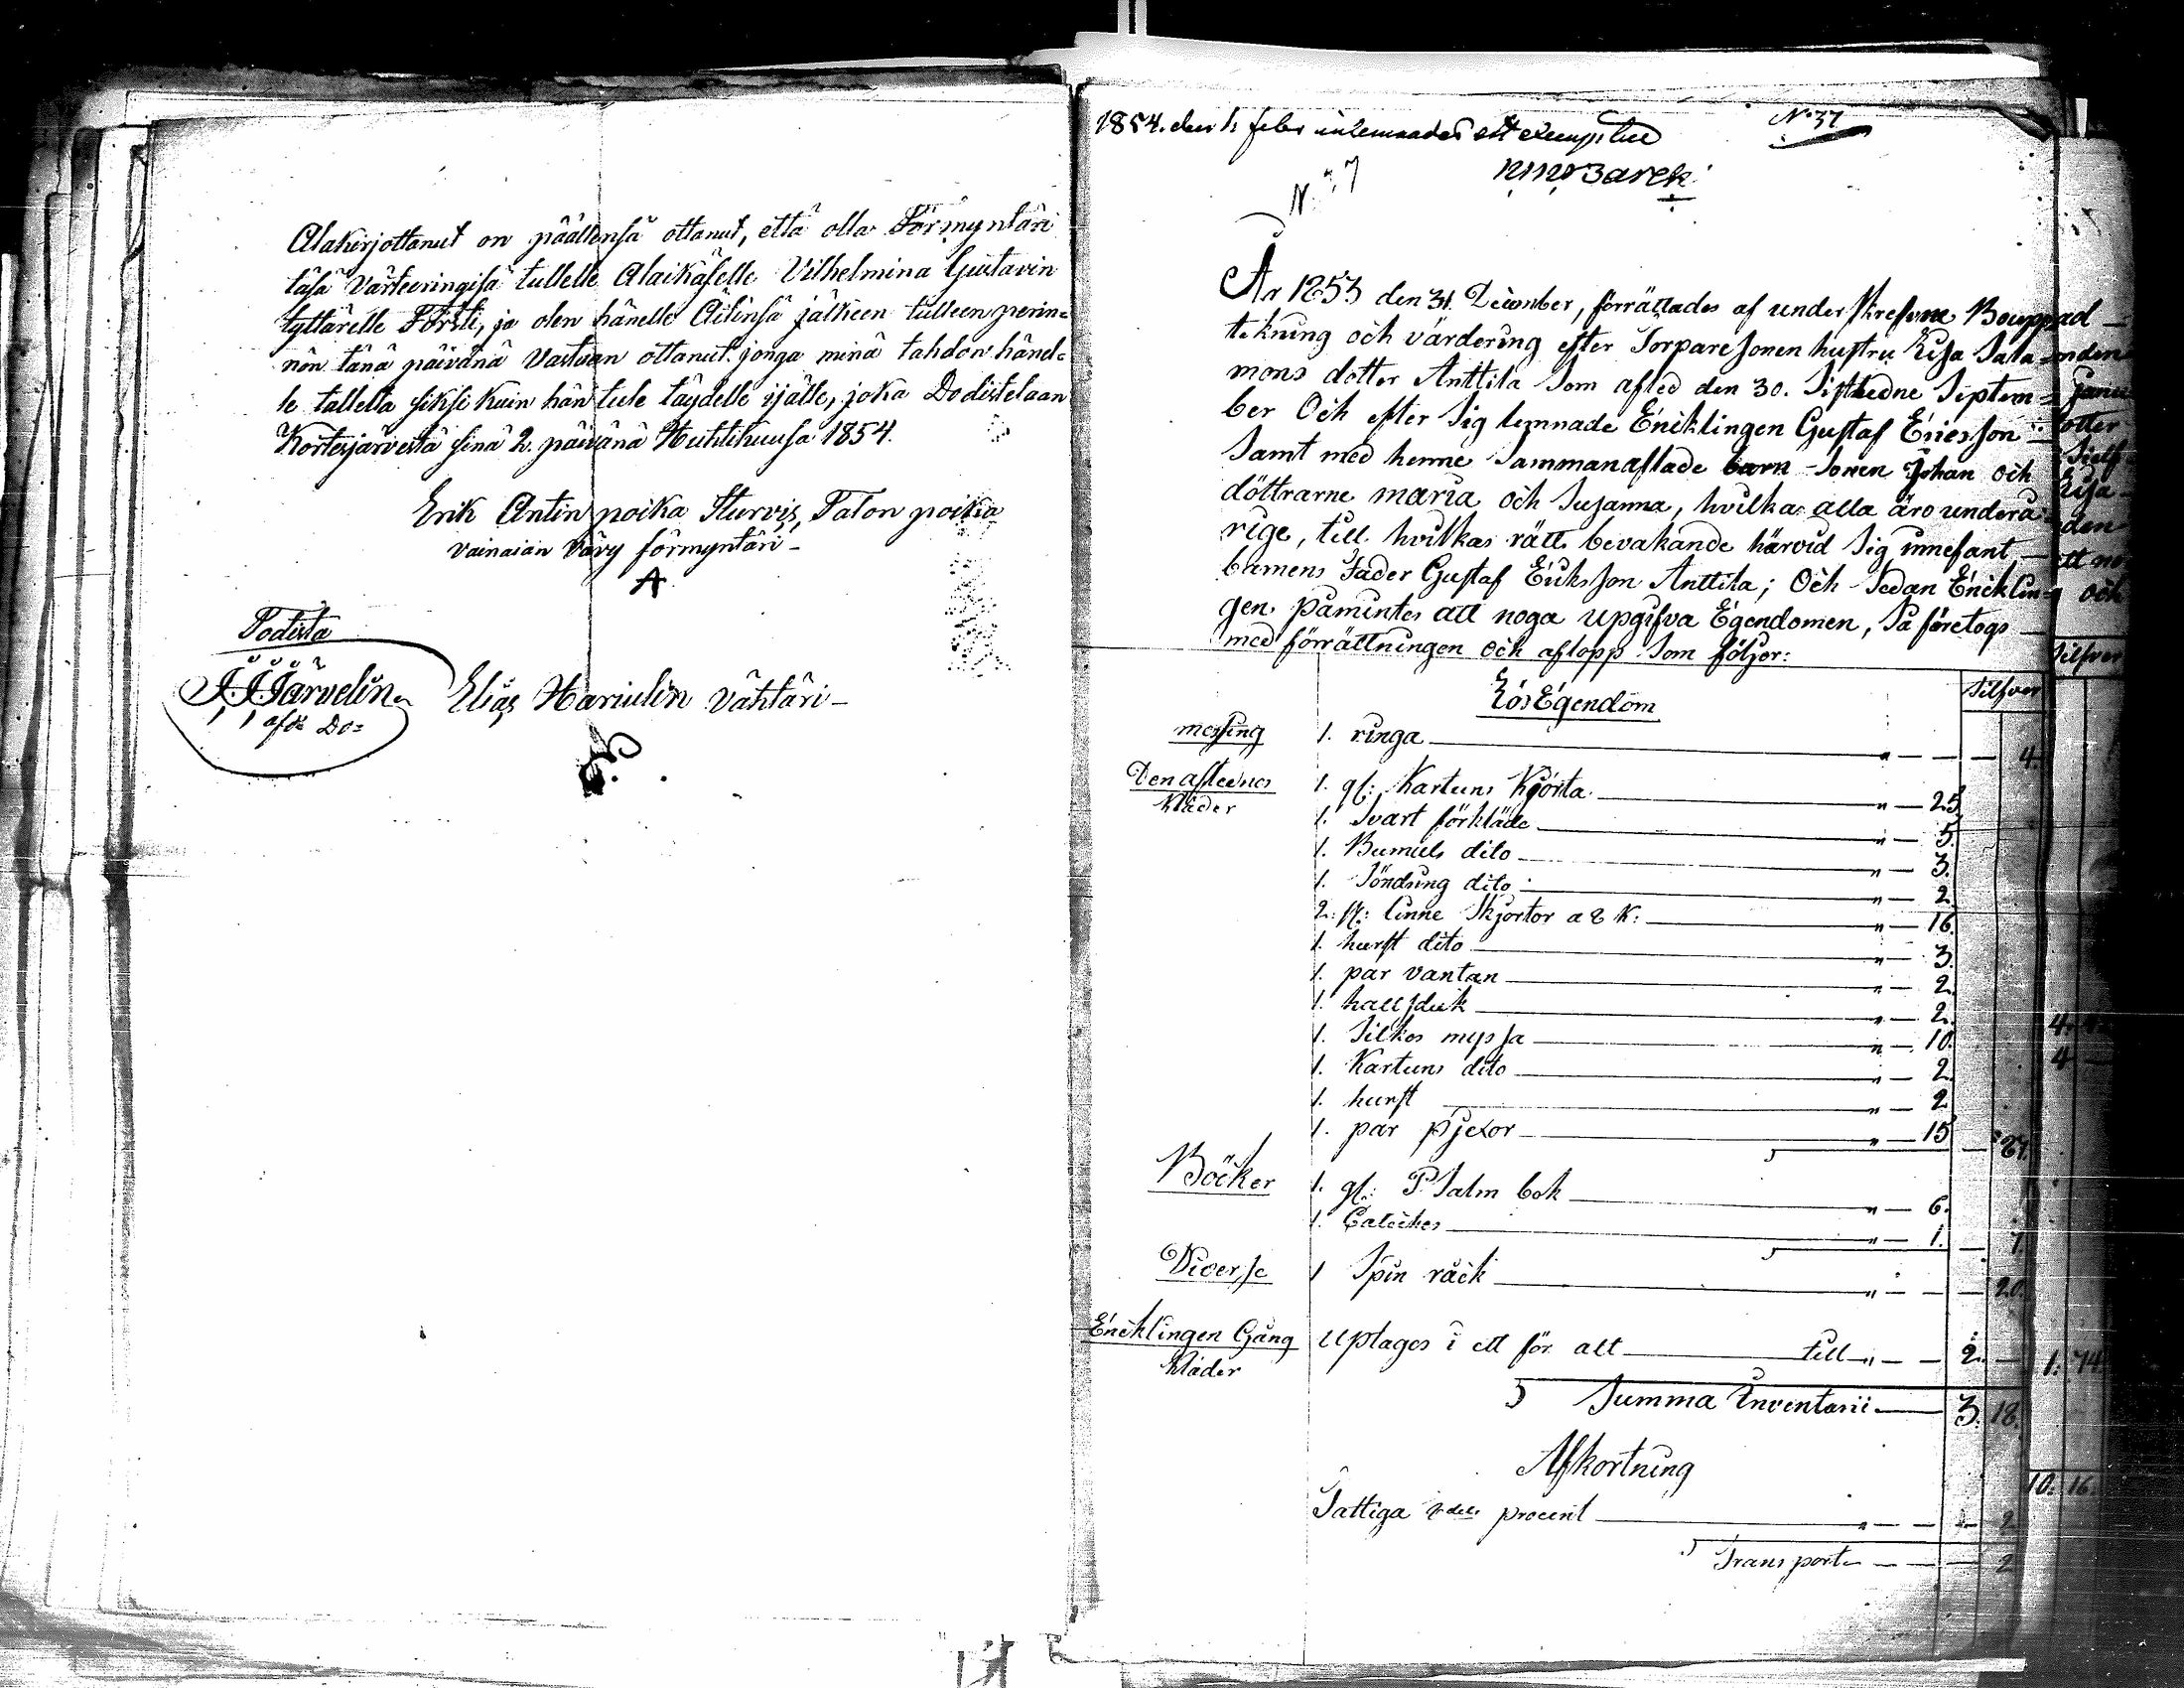 Alakirjottanut on päällensä ottanut, että olla Förmyntäri
täsä Värteeringisä tullelle Alaikäselle Vilhelmina Gustavin
tyttärelle Försti, ja olen hänelle Äitinsä jälkeen tulleen perin=
nön tänä päivänä Vastuan ottanut. jonga minä tahdon hänel=
le talletta siksi kuin hän tule täydelle ijälle, joka Dodistetaan
Kortesjärvestä sinä 2. päivänä Huhtikuusa 1854.
Erik Antin poika Sturvis, Talon poikia
vainaian Vävy förmyntäri –
A
Todista
J. J. Järvelin
Elias Hariulin Vähtäri –
1854. den febr inlemnades ett exemplar
No 37
N. 37
År 1853 den 31. December, förrättades af underskrefvne Bouppad –
tekning och värdering efter Torpare sonen hustru Lisa Sala=
mons dotter Anttila som afled den 30. Sistledne Septem=
ber Och efter Sig lemnade Encklingen Gustaf Ericsson
Samt med henne Sammanaflade barn – Sonen Johan och
döttrarne maria och Susanna, hvilka alla äro underå=
rige, till hvilkas rätts bevakande härvid Sig innefant –
barnens Fader Gustaf Ericksson Anttila; Och Sedan Encklin=
gen påmintes att noga upgifva Egendomen, Så företogs –
med förrättningen och aflopp Som följer:
Silfver
Lös Egendom
messing 1. ringa " — — — 4.
Den aflednes 1. gl: Kartuns Kjorta " — 25.
Kläder
1. Svart förkläde " — 5.
1. Bumuls dito " — 3.
1. Söndring dito " — 2
2: st: linne Skjortor a 8 K: " — 16.
1. hurst dito " — 3.
1. par vantan " — 2.
1. hallsduk " — 2.
1. Silkes myssa " — 10.
1. Kartuns dito " — 2.
1. hurst " — 2
1. par pjexor " — 15 — 87.
Böcker 1. gl: Psalm bok " — 6.
1. Cateckes " — 1. — 7.
Diverse 1 Spin råck " — — — 20.
Encklingen Gång Uptages i ett för alt till " — — 2. —
Kläder
Summa Inventarii — 3. 18.
Afkortning
Fattiga procent " — — — 2
Transport — — — 2